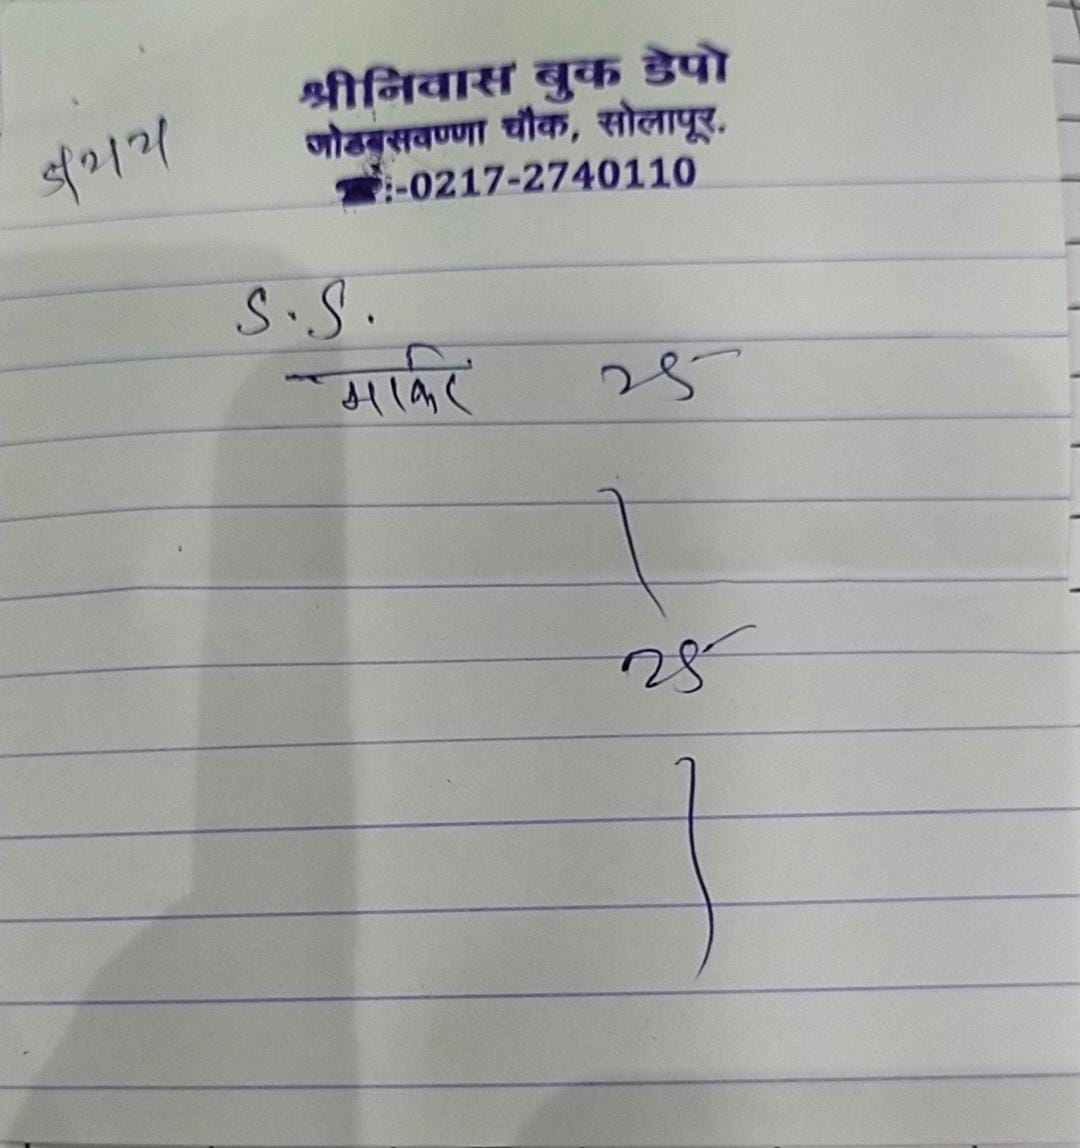 श्रीनिवास बुक डेपो
जोडबसवण्णा चौक, सोलापूर.
☎:-0217-2740110
S.S.
25
25